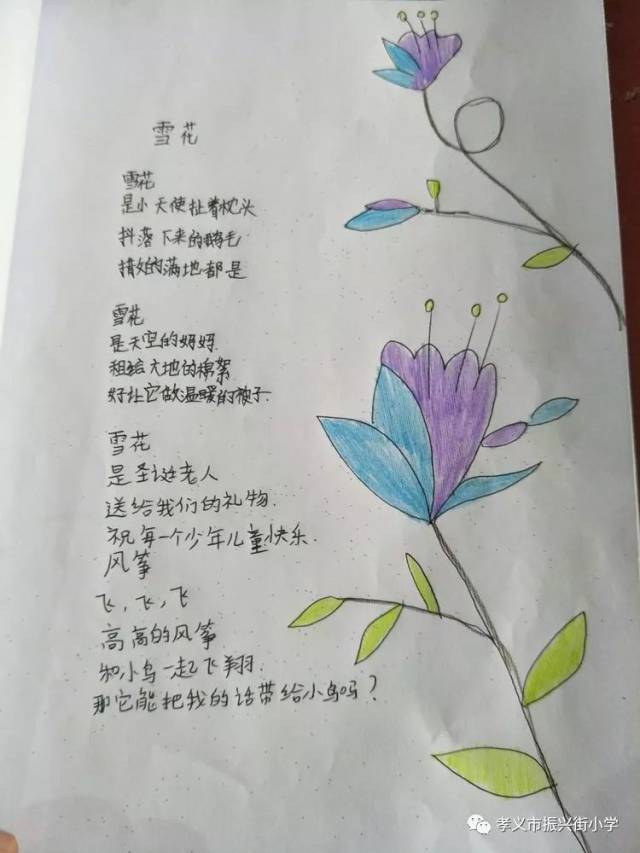 雪花
雪花
是小天使扯着枕头
抖落下来的鹅毛
满地都是
雪花
是天空的妈妈
租给大地的棉絮
好让它做温暖的被子
雪花
是圣诞老人
送给我们的礼物.
祝每一个少年儿童快乐.
风筝
飞,飞,飞
高高的风筝
和小鸟一起飞翔.
那它能把我的话带给小鸟吗?
孝义市振兴街小学